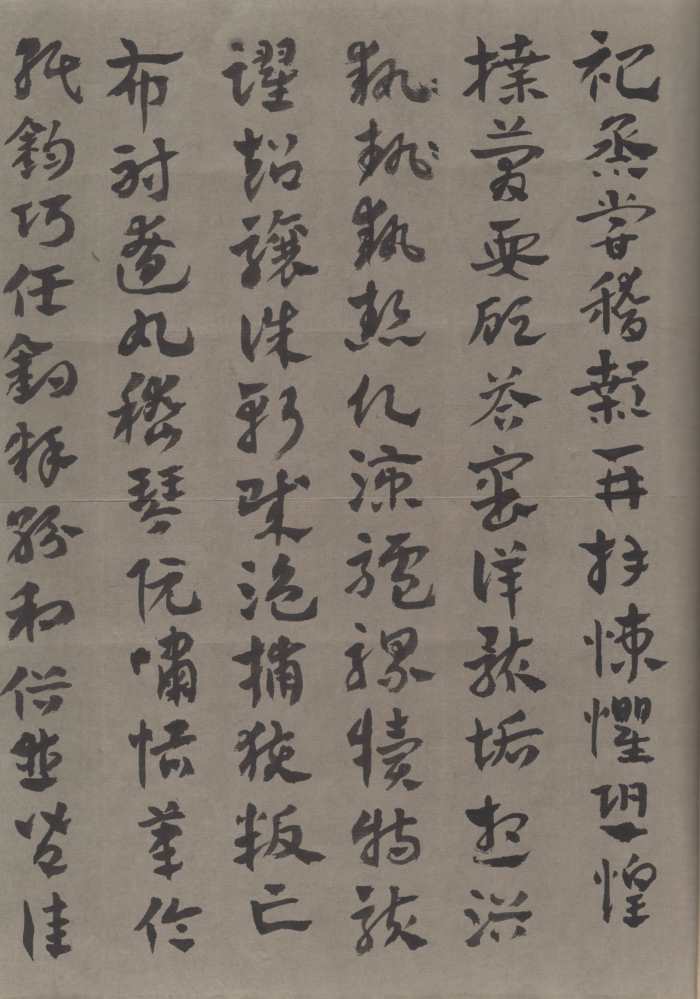 祀蒸嘗稽顙再拜悚懼恐惶
牒簡要顧答審詳骸垢想浴
執執執熱願涼驢騾犢特駭
躍超驤誅斬賊盜捕獲叛亡
布射遼丸嵇琴阮嘯恬筆倫
紙鈞巧任釣釋紛利俗並皆佳